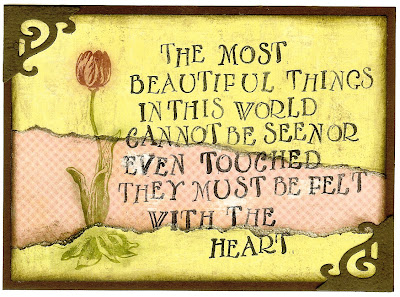 THE MOST
BEAUTIFUL THINGS
IN THIS WORLD
CANNOT BE SEEN OR
EVEN TOUCHED
THEY MUST BE FELT
WITH THE
HEART